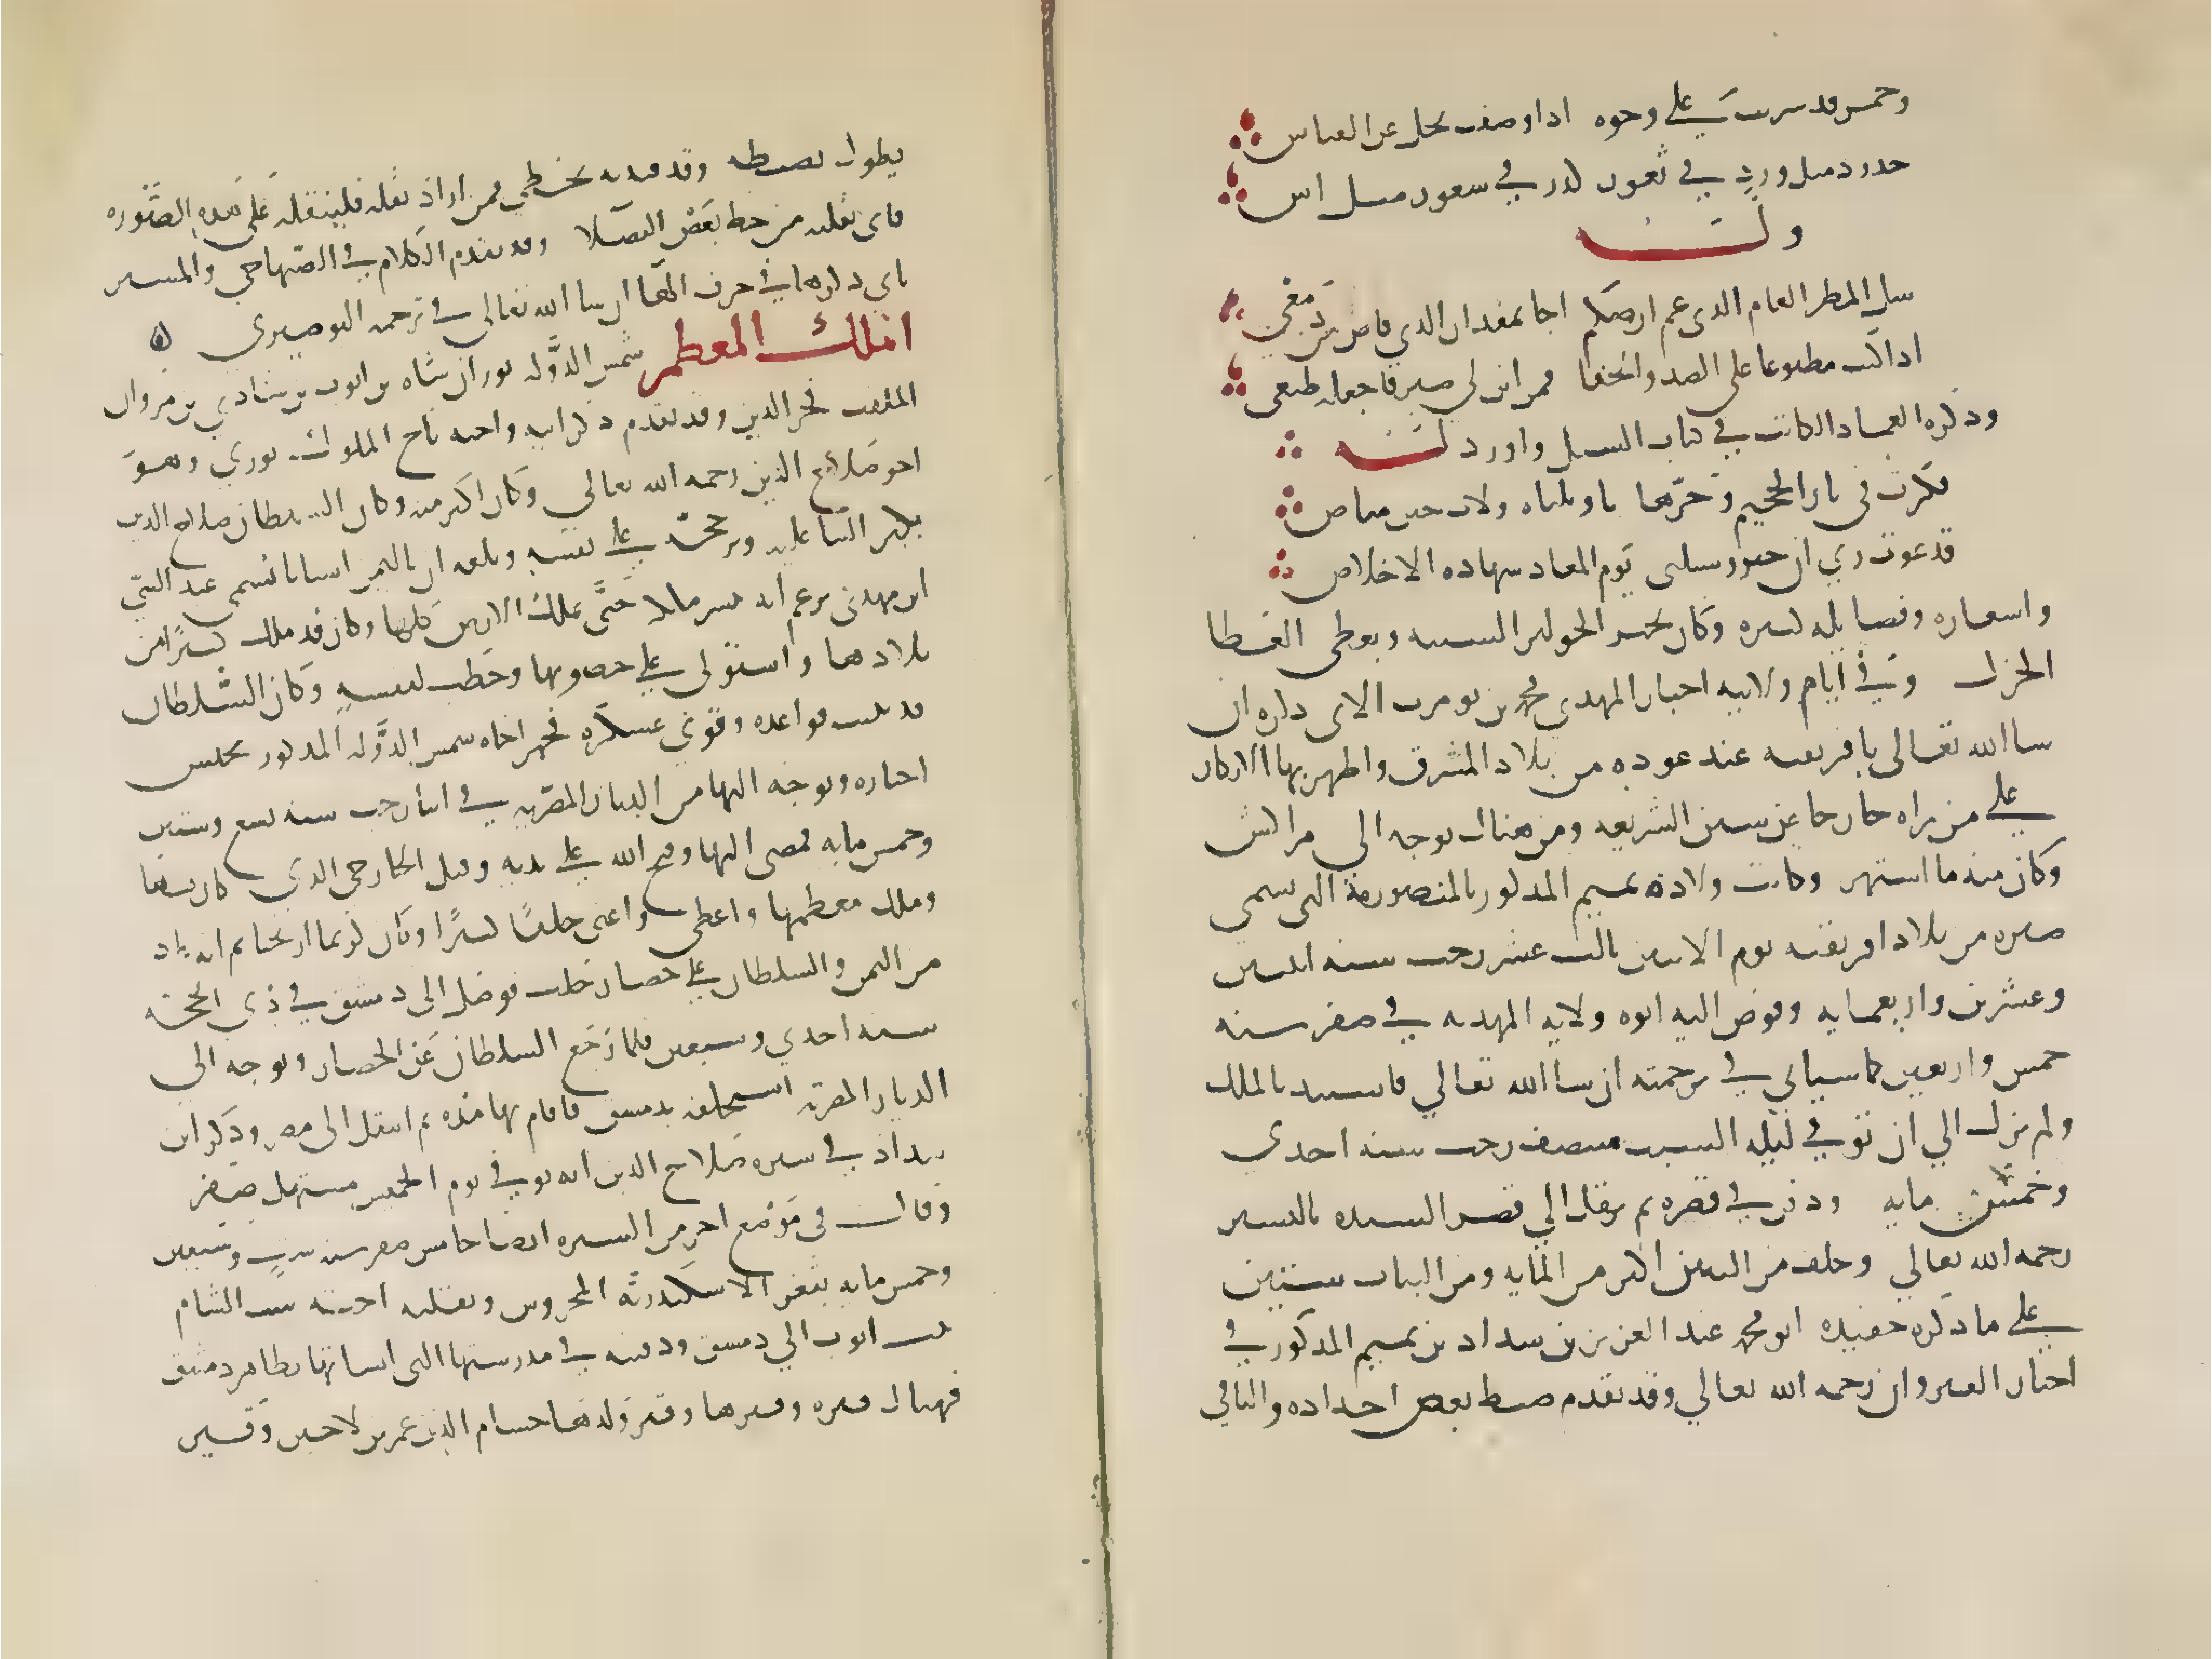 وخمس قد سرت على وجوه اذا وصفت تجل عن القياس
خدود مثل ورد في ثغور كدر في شعور مثل اس
وله
سل المطر العام الذي عم ارضكم اجا بمقدار الذي فاض من دمعي
اذا كنت مطبوعا على الصد والجفا فمن اين لي صبر فاجعله طبعي
وذكره العماد الكاتب في كتاب السيل واورد له
فكرت في نار الجحيم وحرها يا ويلتاه ولات حين مناص
فدعوت ربي ان خير وسيلتي يوم المعاد شهاده الاخلاص
واشعاره وفضايله كثيره وكان يجيز الجوايز السنيه ويعطي العطا
الجزل وفي ايام ولايته اجتاز المهدي محمد بن تومرت الاتي ذكره ان
شا الله تعالى بافريقيه عند عوده من بلاد المشرق واظهر بها الانكار
على من راه خارجا عن سنن الشريعه ومن هناك توجه الى مراكش
وكان منه ما اشتهر وكانت ولادة تميم المذكور بالمنصورية التي تسمى
صبره من بلاد افريقيه يوم الاثنين ثالث عشر رجب سنه اثنين
وعشرين واربعمايه وفوض اليه ابوه ولايه المهديه في صفر سنه
خمس واربعين كما سياتي في ترجمته ان شا الله تعالي فاستبد بالملك
ولم يزل الي ان توفي ليله السبت منتصف رجب سنه احدي
وخمس مايه ودفن في قصره ثم نقل الي قصر السيده بالمنستير
رحمه الله تعالي وخلف من البنين اكثر من المايه ومن البنات ستين
على ما ذكره حفيده ابو محمد عبد العزيز بن شداد بن تميم المذكور في
اخبار القيروان رحمه الله تعالي وقد تقدم ضبط بعض اجداده والباقي
يطول ضبطه وقد قيدته بخطي فمن اراد نقله فلينقله على هذه الصوره
فاني نقلته من خط بعض الفضلا وقد تقدم الكلام في الصنهاجي والمنستير
ياتي ذكرها في حرف الها ان شا الله تعالي في ترجمه البوصيري ه
الملك المعظم شمس الدوله توران شاه بن ايوب بن شادي بن مروان
الملقب فخر الدين وقد تقدم ذكر ابيه واخيه تاج الملوك بوري وهو
اخو صلاح الدين رحمه الله تعالي وكان اكبر منه وكان السلطان صلاح الدين
يكثر الثنا عليه ويرجحه على نفسه وبلغه ان باليمن انسانا تسمى عبد النبي
ابن مهدي يزعم انه ينتشر ملكه حتى يملك الارض كلها وكان قد ملك كثيرا من
بلادها واستولى على حصونها وخطب لنفسه وكان السلطان
قد ثبتت قواعده وقوي عسكره فجهز اخاه شمس الدوله المذكور بجيش
اختاره وتوجه اليها من الديار المصريه في اثنا رجب سنه تسع وستين
وخمس مايه فمضى اليها وفتح الله على يديه وقتل الخارجي الذي كان بها
وملك معظمها واعطى واغنى خلقا كثيرا وكان كريما اريحيا ثم انه عاد
من اليمن والسلطان على حصار حلب فوصل الى دمشق في ذي الحجه
سنه احدي وسبعين فلما رجع السلطان عن الحصار وتوجه الي
الديار المصريه استخلفه بدمشق فاقام بها مده ثم انتقل الى مصر وذكر ابن
شداد في سيره صلاح الدين انه توفي يوم الخميس مستهل صفر
وقال في موضع اخر من السيره ايضا خامس صفر سنه ست وسبعين
وخمس مايه بثغر الاسكندريه المحروس ونقلته اخته ست الشام
بنت ايوب الي دمشق ودفنته في مدرستها التي انشاتها بظاهر دمشق
فهناك قبره وقبرها وقبر ولدها حسام الدين عمر بن لاجين وقبر